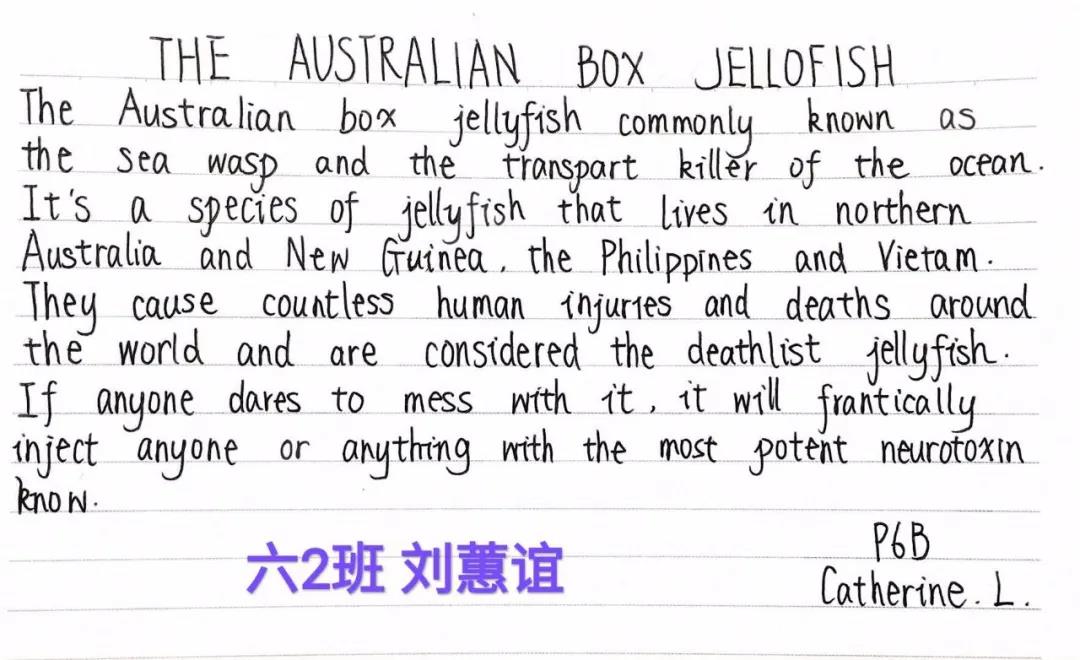 THE AUSTRALIAN BOX JELLOFISH
The Australian box jellyfish commonly known as
the sea wasp and the transpart killer of the ocean.
It's a species of jellyfish that lives in northern
Australia and New Guinea, the Philippines and Vietam.
They cause countless human injuries and deaths around
the world and are considered the deathlist jellyfish.
If anyone dares to mess with it, it will frantically
inject anyone or anything with the most potent neurotoxin
know.
P6B
六2班 刘蕙谊
Catherine. L.